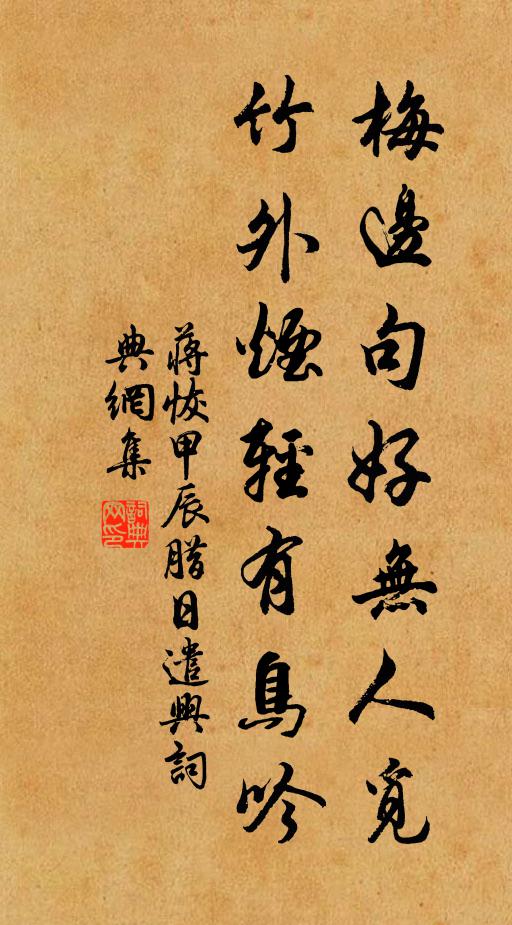 梅邊句好無人覓
竹外煙輕有鳥吟
蔣恢甲辰腊日遣興詞
典網集
詞典網印